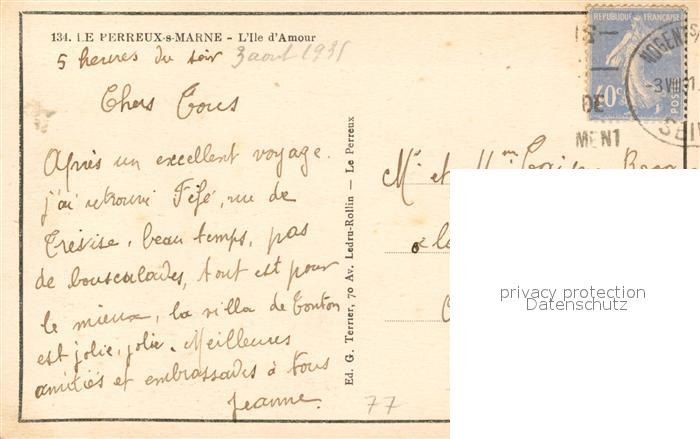 134. LE PERREUX-s-MARNE - L'Ile d'Amour
5 heures du soir 3 aout 1931
Chers Tous
Après un excellent voyage.
j'ai retrouvé Féfé, rue de
Trévise, beau temps, pas
de bousculades, tout est pour
le mieux, la villa de Tonton
est jolie, jolie. Meilleures
amitiés et embrassades à tous
Jeanne.
77
Ed. G. Terrier, 70 Av. Ledru-Rollin — Le Perreux
REPUBLIQUE FRANÇAISE
40c
POSTES
NOGENT S/
-3 VIII 31
SEI
DE
MENT
Mr et Mme
privacy protection
Datenschutz